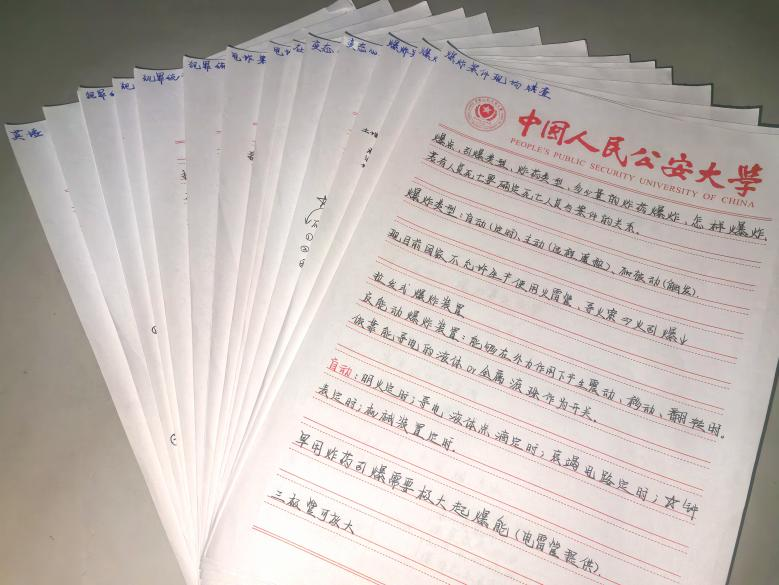 英语
犯罪
犯
犯罪
犯罪侦
电炸案
变态
变态心
爆炸
爆炸案件现场勘查
中国人民公安大学
PEOPLE'S PUBLIC SECURITY UNIVERSITY OF CHINA
爆点、引爆类型、炸药类型、多少量的炸药爆炸、怎样爆炸、
若有人员死亡要确定死亡人员与案件的关系.
爆炸类型:自动(定时)、主动(远程遥控)、和被动(触发).
现目前国家不允许生产使用火雷管、导火索→火引爆↓
拉发式爆炸装置
反能动爆炸装置:能够在外力作用下产生震动、移动、翻转时.
依靠能导电的液体or金属滚珠作为开关.
自动:明火定时;导电液体点滴定时;衰竭电路定时;钟
表定时;机械装置定时.
单用炸药引爆需要极大起爆能(电雷管提供)
三极管可放大